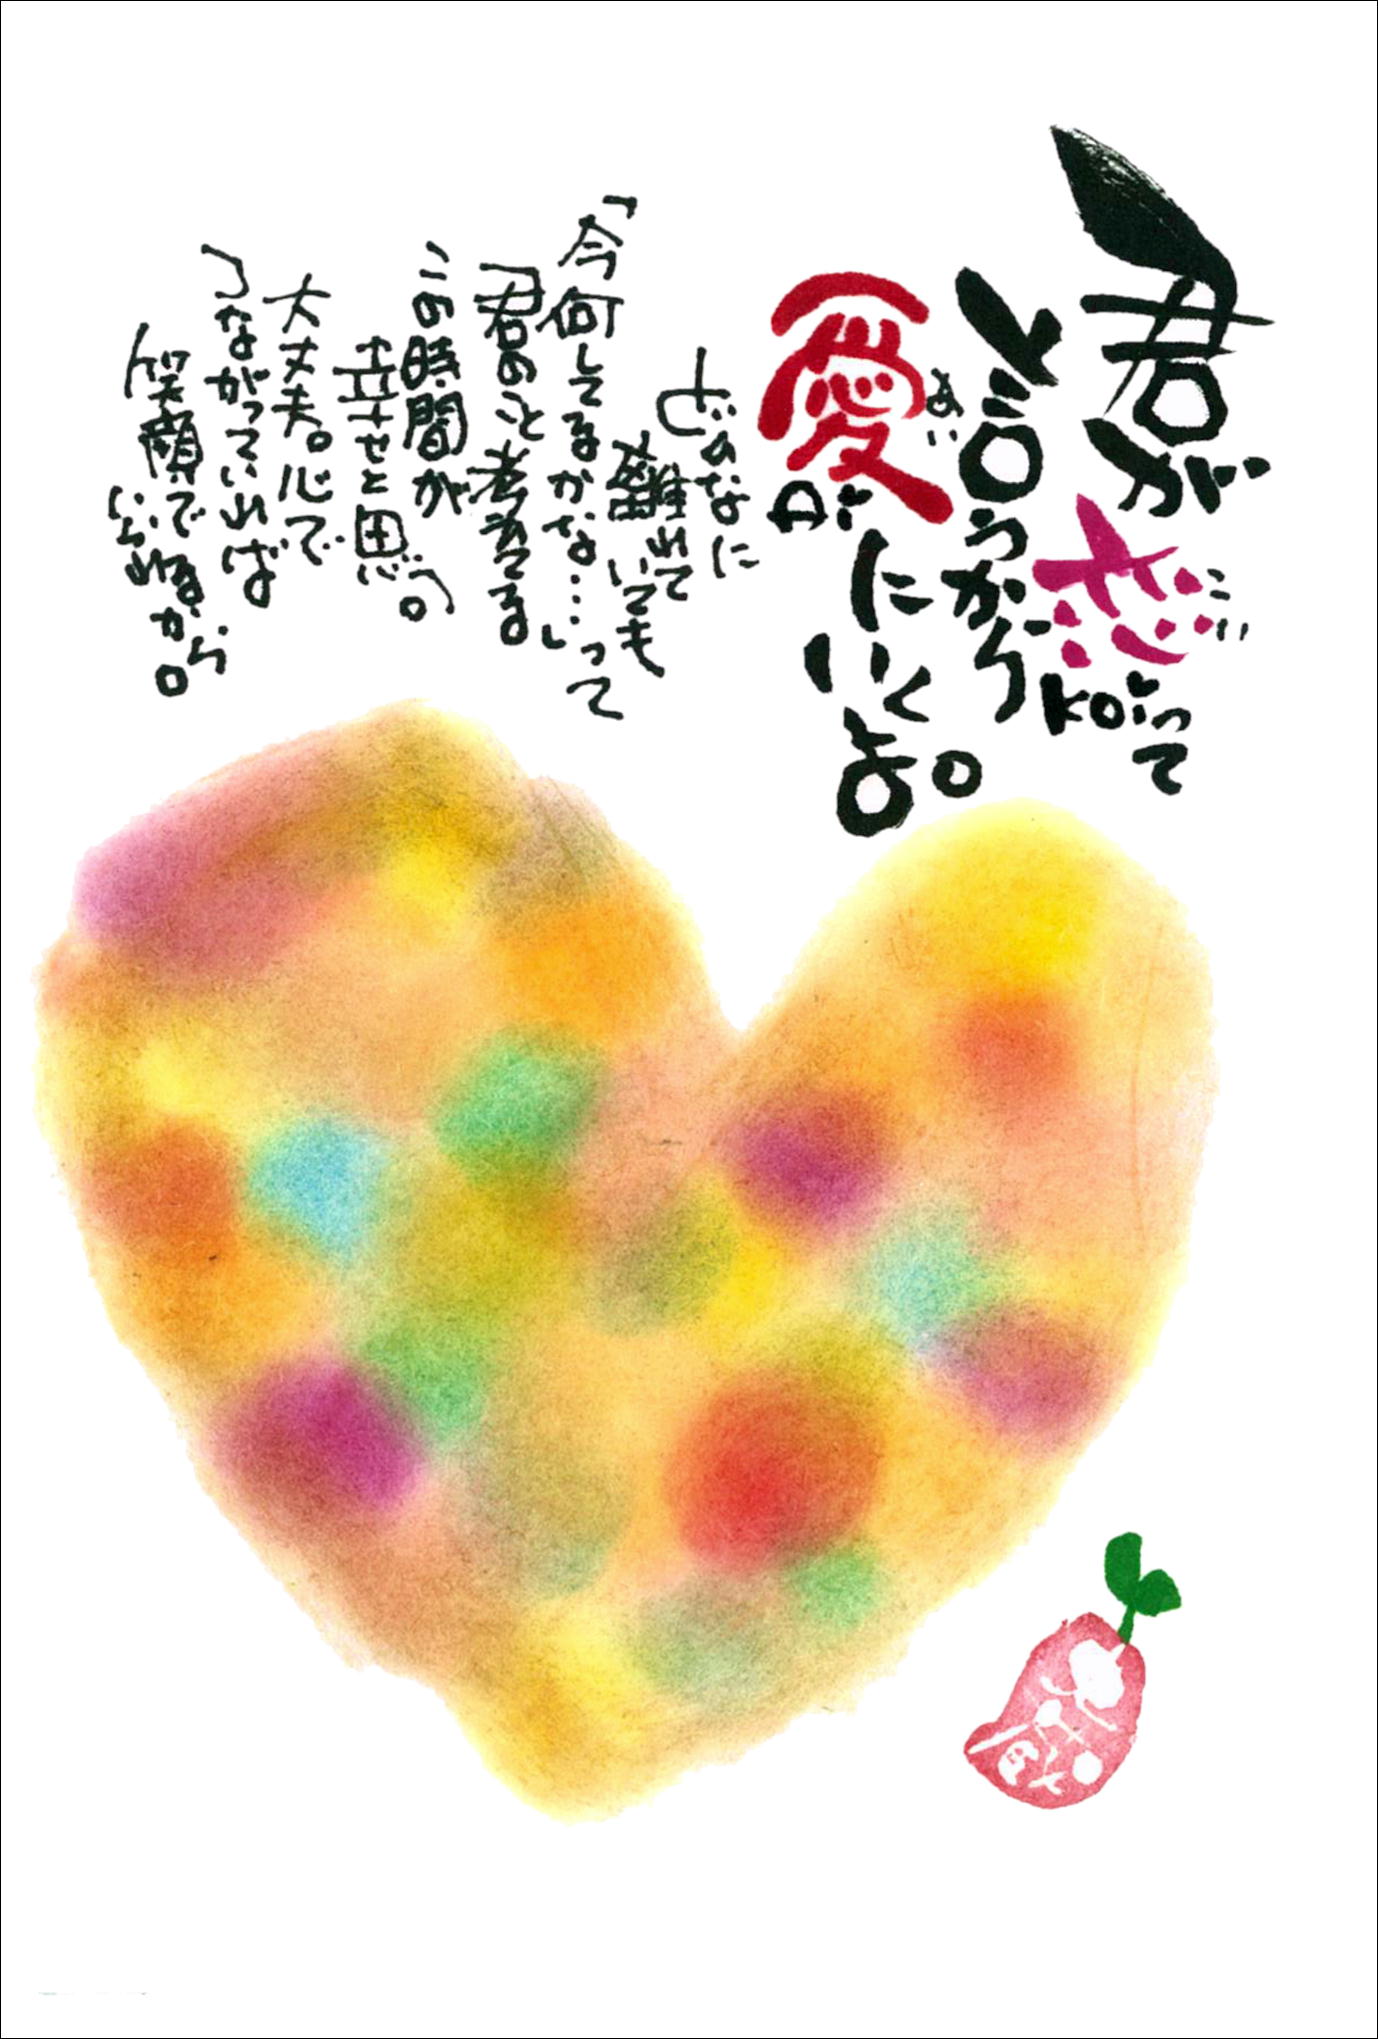 君が恋って
こい
koi
と言うから
愛にいくよ。
あい
Ai
どんなに
離れていても
「今何してるかな…」って
君のこと考えてる
この時間が
幸せと思う。
大丈夫。心で
つながっていれば
笑顔で
いられるから。